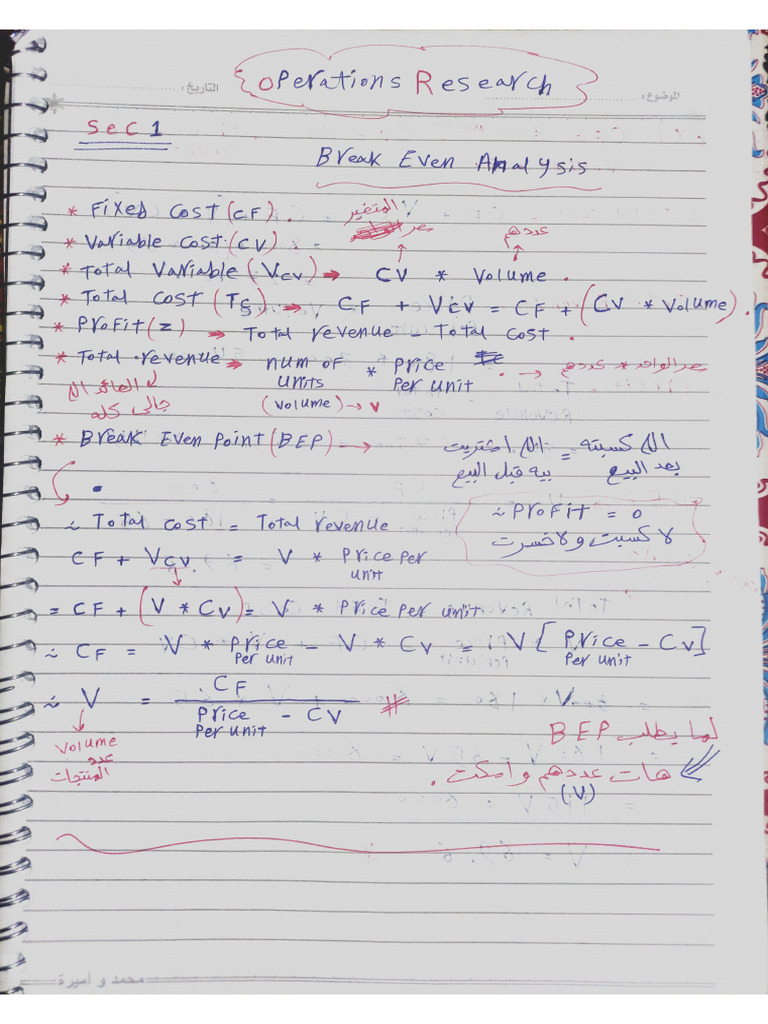 الموضوع : التاريخ :
Operations Research
Sec 1
Break Even Analysis
* Fixed Cost (CF) .
المتغير
* Variable Cost (CV) سعر عددهم
* Total Variable (Vcv) → CV * Volume .
* Total Cost (Tc) → CF + Vcv = CF + (Cv * Volume) .
* Profit (z) → Total revenue - Total cost .
* Total revenue → num of units * Price Per unit → سعر الواحد * عددهم
(volume) → v
العائد اللي
جالي كله
* Break Even Point (BEP) → اللي كسبته بعد البيع = اللي اشتريت بيه قبل البيع
∴ Profit = 0
لا كسبت ولا خسرت
∴ Total cost = Total revenue
CF + Vcv = V * Price per unit
= CF + (V * Cv) = V * Price Per unit
∴ CF = V * Price Per unit - V * Cv = V [Price Per unit - Cv]
∴ V = CF / Price Per unit - CV #
Volume
عدد
المنتجات
لما يطلب BEP
هات عددهم وامكت .
(V)
محمد و أميرة